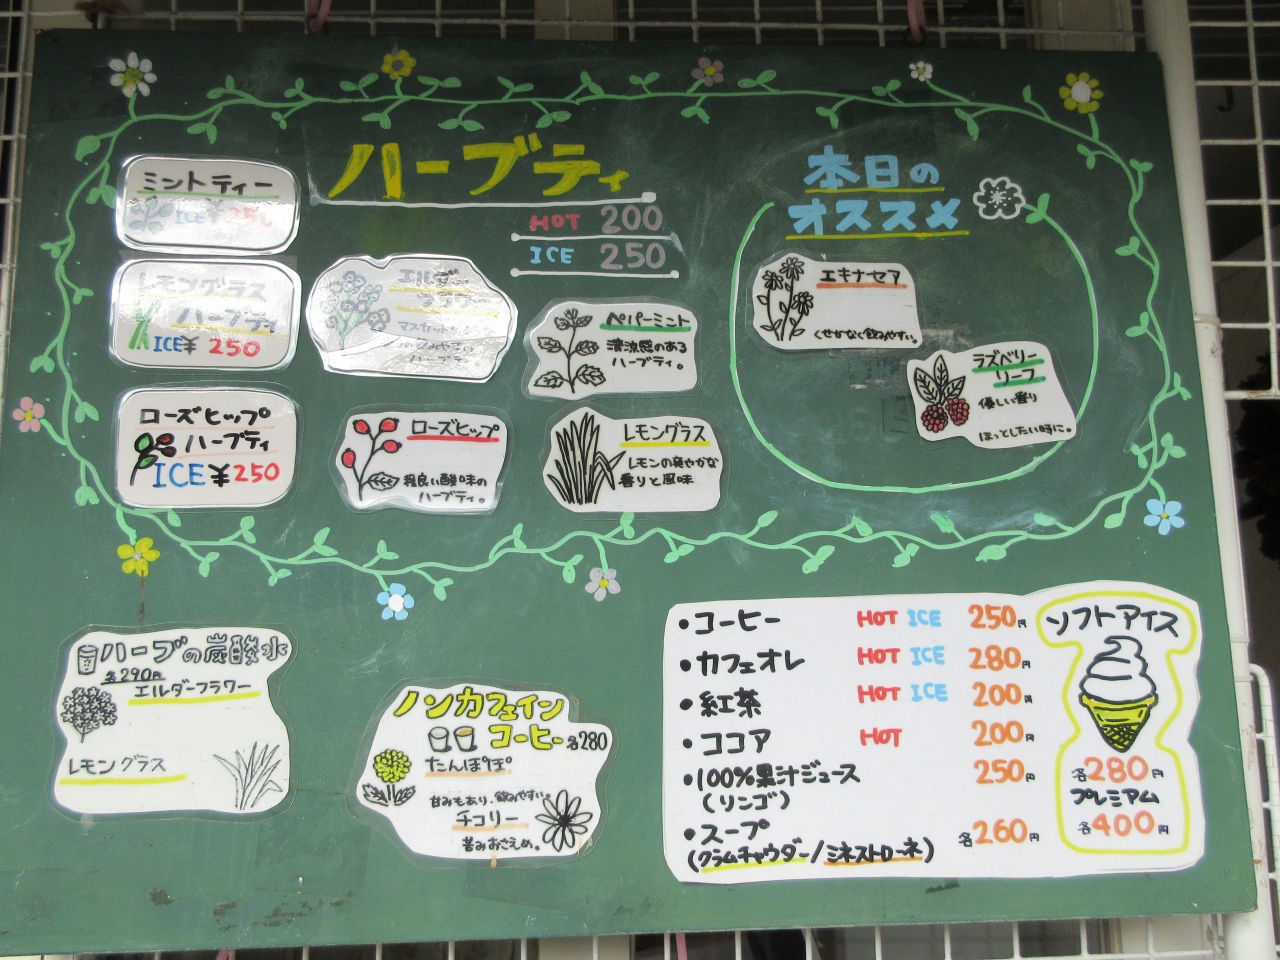 ハーブティ
HOT 200
ICE 250
ミントティー
ICE ¥250
レモングラス
ハーブティ
ICE¥ 250
ローズヒップ
ハーブティ
ICE¥250
エルダー
フラワー
マスカットのような
ハーブティ
ペパーミント
清涼感のある
ハーブティ。
ローズヒップ
程良い酸味の
ハーブティ。
レモングラス
レモンの爽やかな
香りと風味
本日の
オススメ
エキナセア
くせがなく飲みやすい。
ラズベリー
リーフ
優しい香り
ほっとしたい時に。
ハーブの炭酸水
各290円
エルダーフラワー
レモングラス
ノンカフェイン
コーヒー各280
たんぽぽ
甘みもあり、飲みやすい。
チコリー
苦みおさえめ。
・コーヒー HOT ICE 250円
・カフェオレ HOT ICE 280円
・紅茶 HOT ICE 200円
・ココア HOT 200円
・100%果汁ジュース 250円
(リンゴ)
・スープ 各260円
(クラムチャウダー/ミネストローネ)
ソフトアイス
各280円
プレミアム
各400円